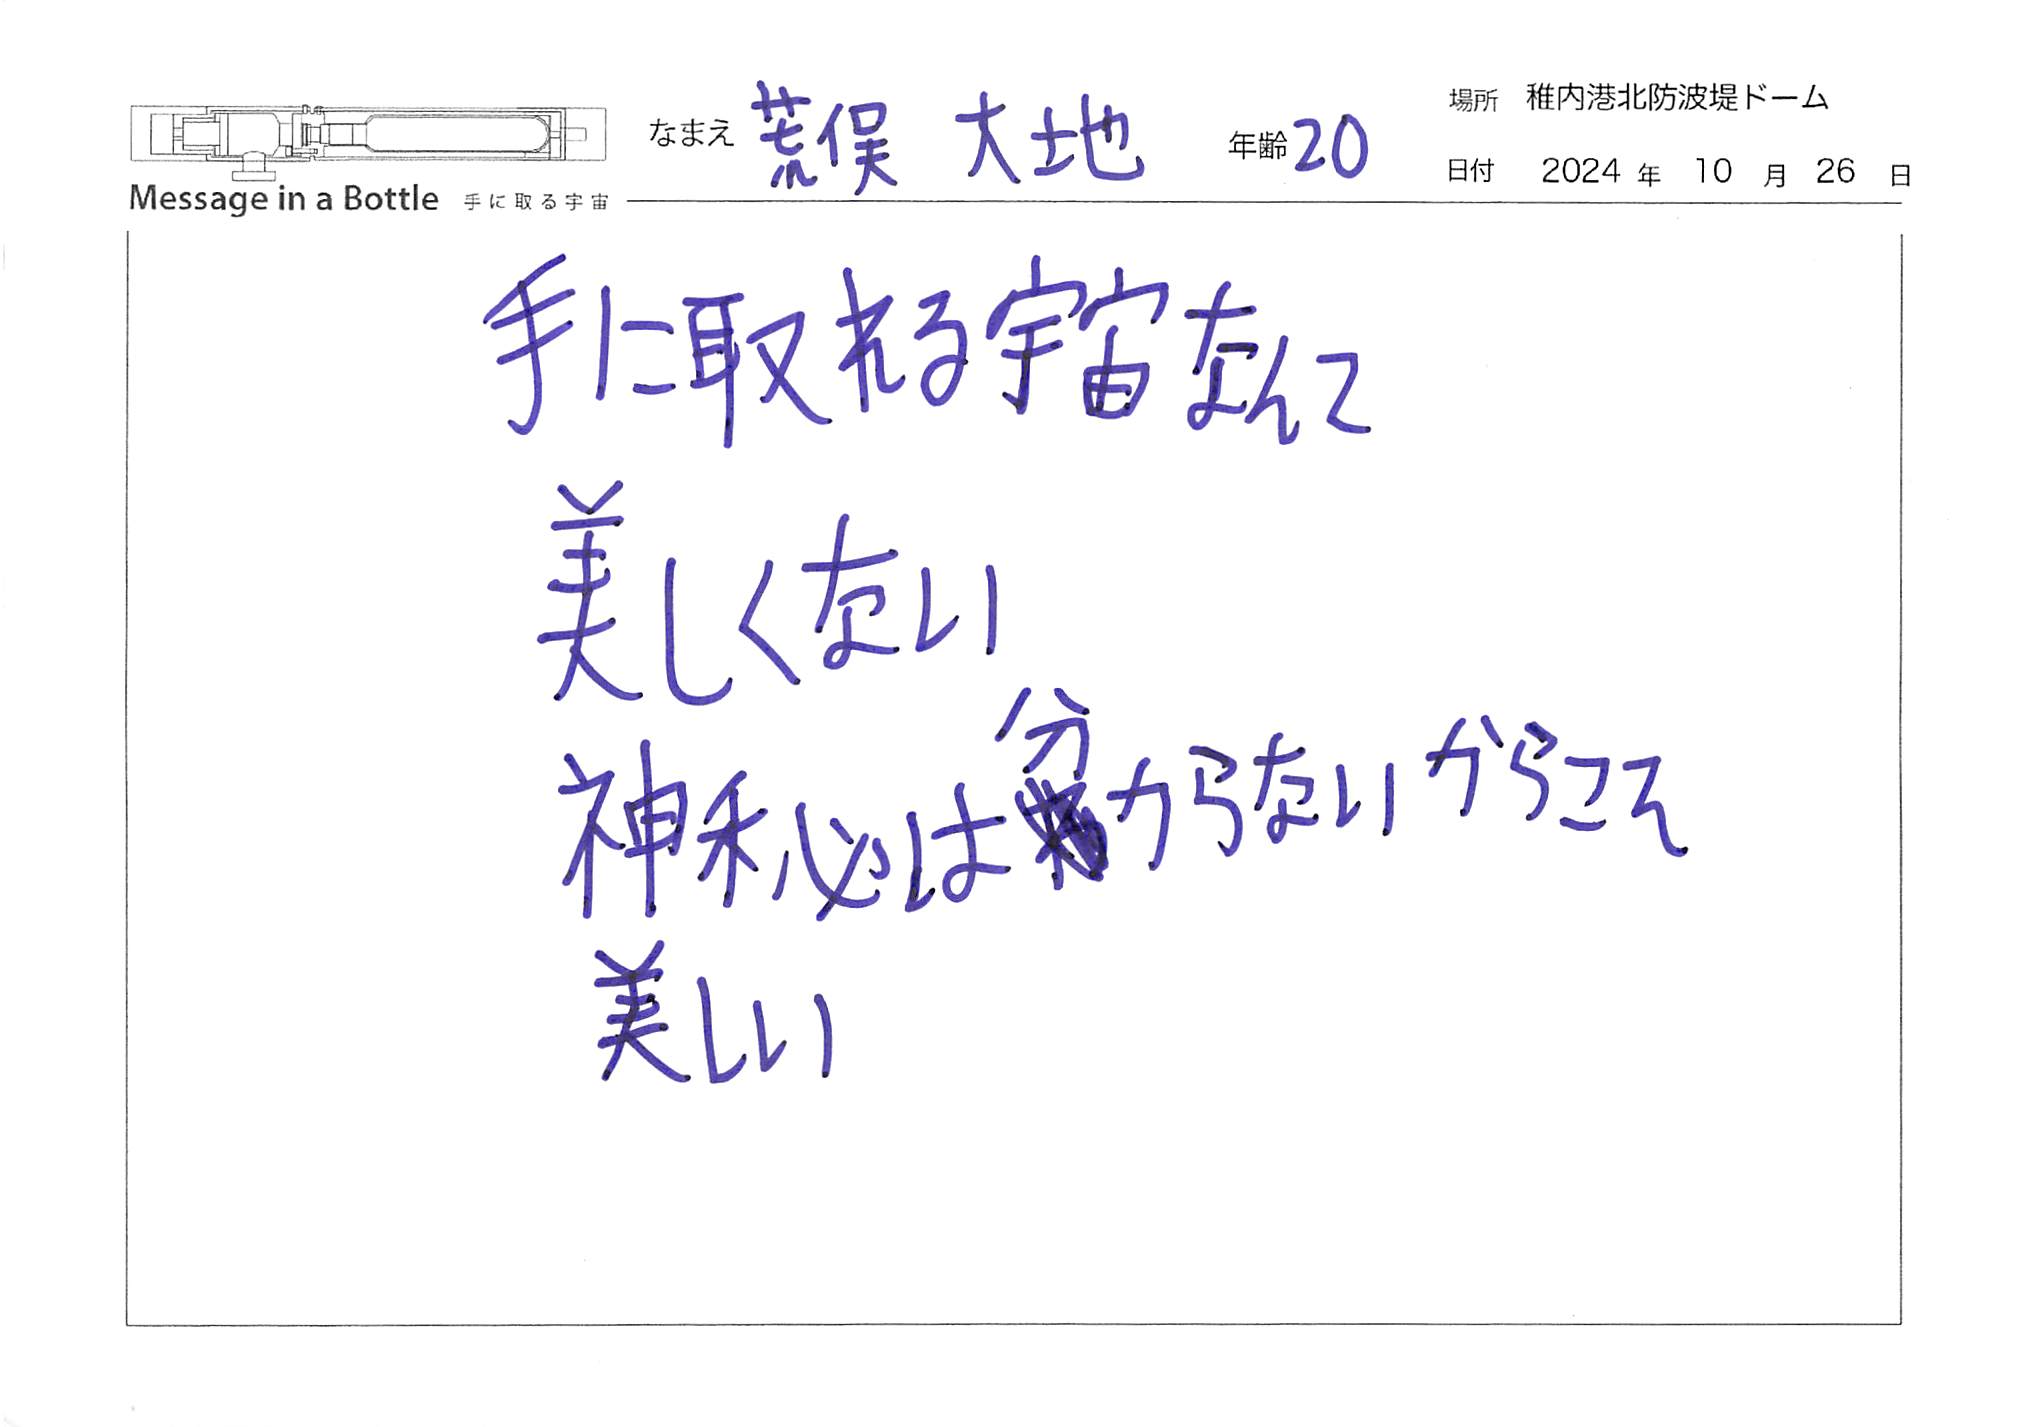 場所 稚内港北防波堤ドーム
なまえ 荒俣 大地 年齢 20
日付 2024 年 10 月 26 日
Message in a Bottle 手に取る宇宙
手に取れる宇宙なんて
美しくない
神秘は分からないからこそ
美しい